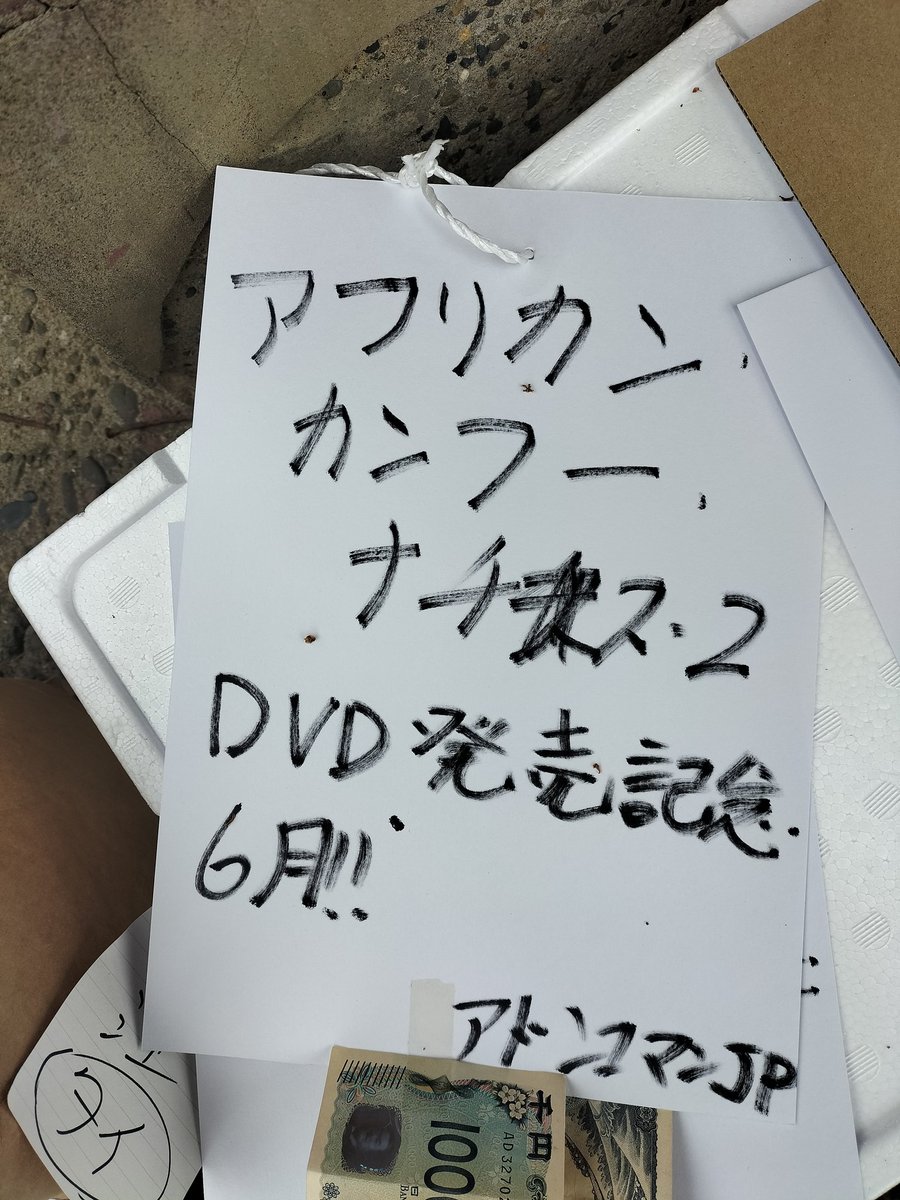 アフリカン
カンフー
ナチス・2
DVD発売記念
6月!!
アドンコマンJP
千円
1000
AD3270